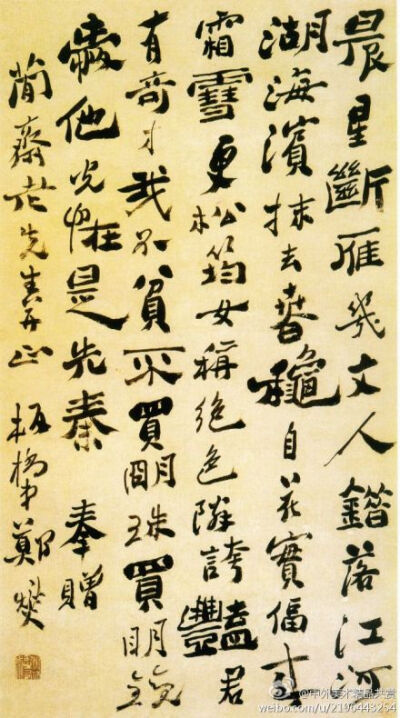 晨星斷雁幾文人錯落江河
湖海濱抹去春龝自花實偪來
霜雪更枯筠女稱絕色鄰誇豔君
有奇才我不貧不買明珠買明鏡
愛他光怪是先秦 奉贈
簡齋老先生 正 板橋弟鄭燮
@中外美术精品共赏
weibo.com/u/2196443254